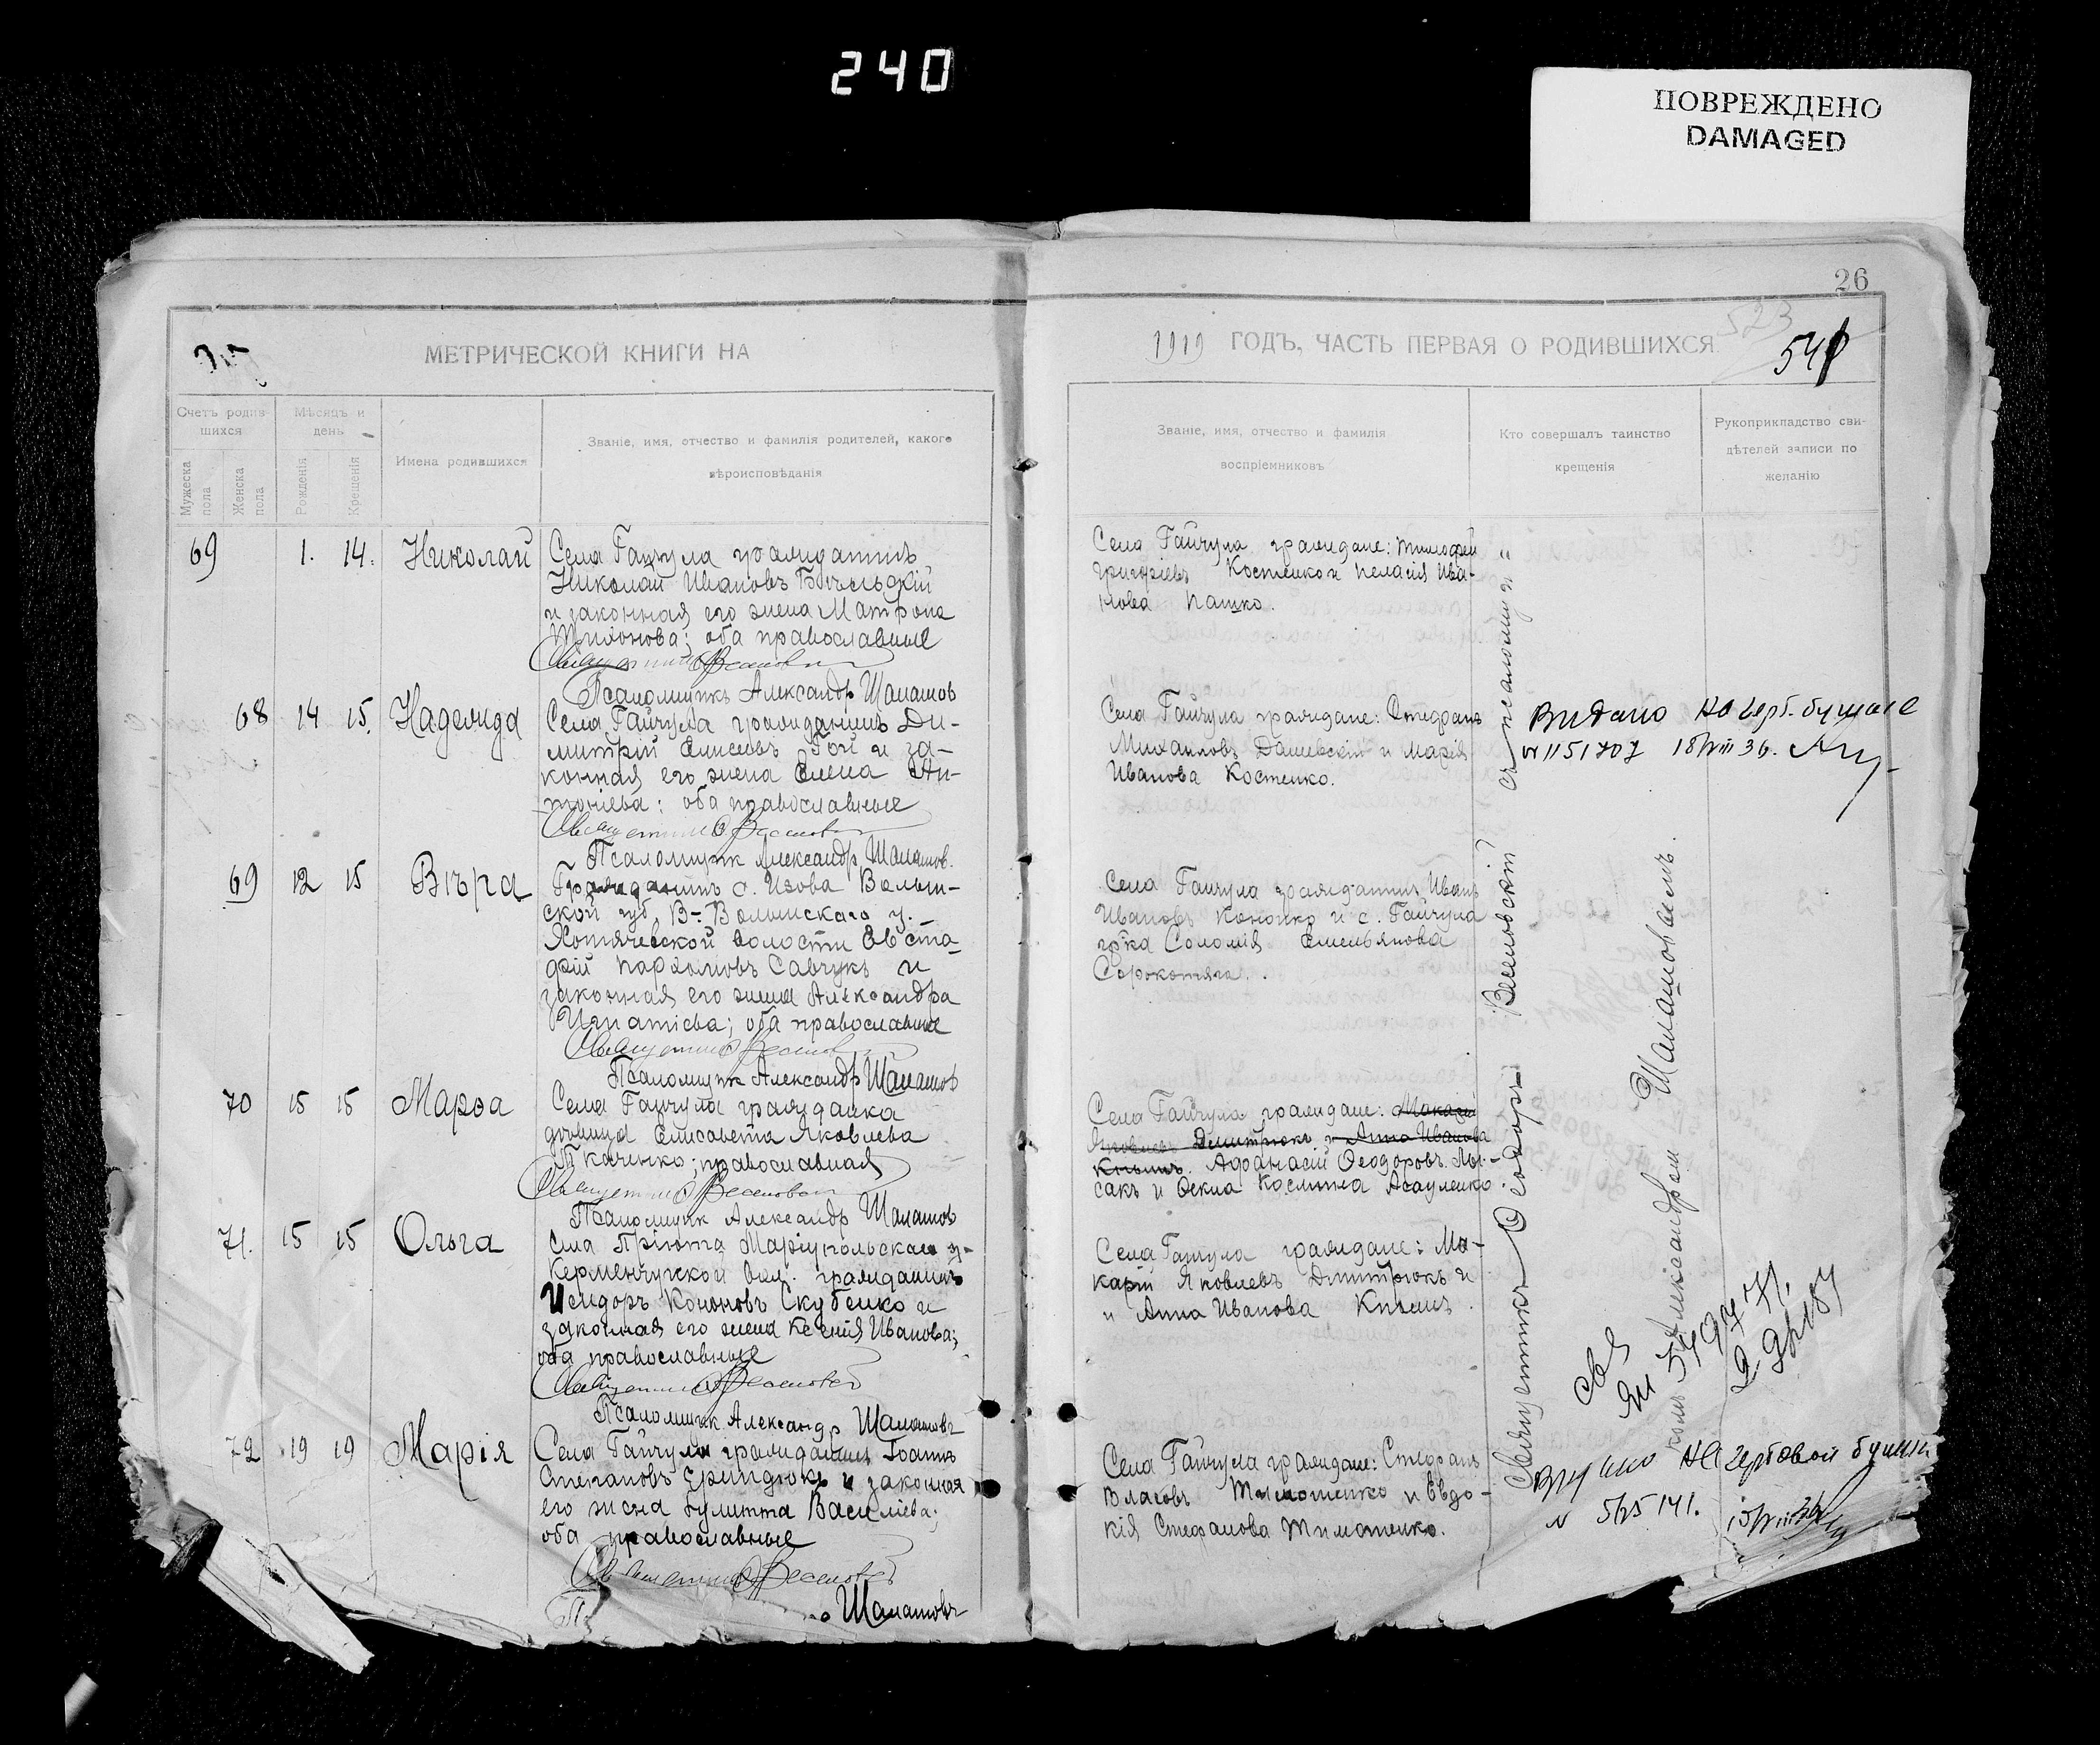 240
ПОВРЕЖДЕНО
DAMAGED
26
МЕТРИЧЕСКОЙ КНИГИ НА
1919 ГОДЪ, ЧАСТЬ ПЕРВАЯ О РОДИВШИХСЯ
523
541
Счетъ родив-
шихся
Мужеска пола
Женска пола
Мѣсяцъ и
день
Рожденія
Крещенія
Имена родившихся
Званіе, имя, отчество и фамилія родителей, какого
вѣроисповѣданія
Званіе, имя, отчество и фамилія
воспріемниковъ
Кто совершалъ таинство
крещенія
Рукоприкладство сви-
дѣтелей записи по
желанію
69 1. 14. Николай
Села Гайчула гражданинъ
Николай Ивановъ
и законная его жена Матрона
Тихонова; оба православные
Псаломщикъ Александр Шаламов
Села Гайчула граждане: Тимофей
Григорьевъ Костенко и Пелагія Ива-
нова Пашко.
68 14 15. Надежда
Села Гайчула гражданинъ Ди-
митрій Елисеевъ Гой и за-
конная его жена Елена Ан-
тоніева; оба православные
Псаломщик Александр Шаламов.
Села Гайчула граждане: Стефанъ
Михаиловъ Дашевскій и Марія
Иванова Костенко.
Видано на герб. бумазе
N 1151707 18/VIII 36.
69 12 15 Вѣра
Гражданинъ с. Изова Волын-
ской губ, В-Волынскаго у.
Хотячевской волости Евста-
фій Пархомовъ Савчукъ и
законная его жена Александра
Игнатіева; оба православные
Псаломщик Александр Шаламов
Села Гайчула гражданинъ Иванъ
Ивановъ Кононко и с. Гайчула
гр-ка Соломія Емельянова
Сорокотяга.
70 15 15 Марѳа
Села Гайчула гражданка
дѣвица Елисавета Яковлева
Ткаченко; православная
Псаломщик Александр Шаламов
Села Гайчула граждане: Макарій
Яковлевъ Дмитрюкъ и Анна Иванова
Книшъ. Афанасій Ѳеодоровъ Лы-
сакъ и Ѳекла Космина Асауленко.
71. 15 15 Ольга
Села Пріюта Маріупольскаго у-
Керменчугской вол. гражданинъ
Исидоръ Кононовъ Скубенко и
законная его жена Ксенія Иванова;
оба православные
Псаломщик Александр Шаламовъ
Села Гайчула граждане: Ма-
карій Яковлевъ Дмитрюкъ и
и Анна Иванова Книшъ.
72 19 19 Марія
Села Гайчула гражданинъ Іоаннъ
Степановъ и законная
его жена Іулитта Василіева;
оба православные
Шаламовъ
Села Гайчула граждане: Стефанъ
Власовъ Тимошенко и Евдо-
кія Стефанова Тимошенко.
Священникъ Ѳеодоръ Веселовскій съ псаломщи-
комъ Александромъ Шаламовымъ.
на гербовой бумаги
N 525141.